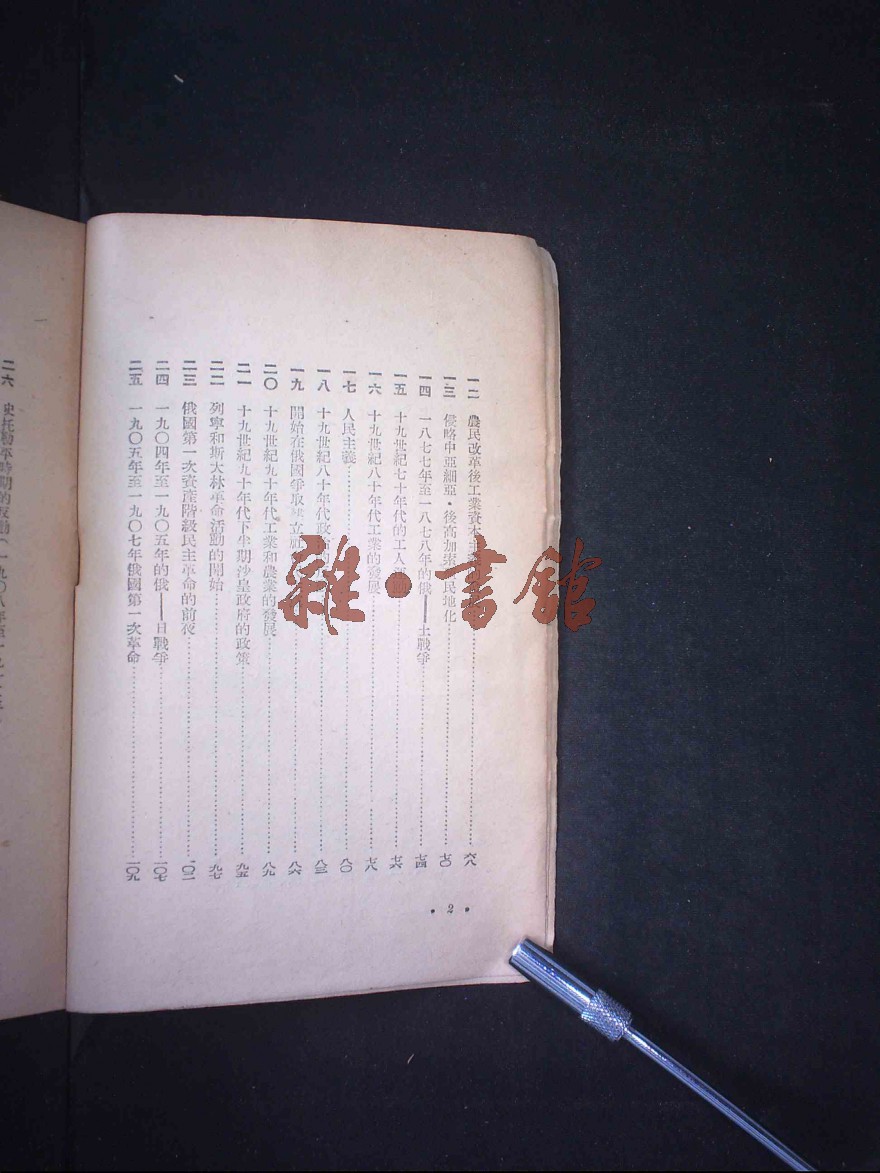 一二 農民改革後工業資本主 六八
一三 侵略中亞細亞·後高加索殖民地化 七〇
一四 一八七七年至一八七八年的俄——土戰爭 七四
一五 十九世紀七十年代的工人 七六
一六 十九世紀八十年代工業的發展 七八
一七 人民主義 八〇
一八 十九世紀八十年代政 八三
一九 開始在俄國爭取建立 八六
二〇 十九世紀九十年代工業和農業的發展 八九
二一 十九世紀九十年代下半期沙皇政府的政策 九五
二二 列寧和斯大林革命活動的開始 九七
二三 俄國第一次資產階級民主革命的前夜 一〇二
二四 一九〇四年至一九〇五年的俄——日戰爭 一〇七
二五 一九〇五年至一九〇七年俄國第一次革命 一〇九
• 2 •
二六 史托勒平時期的反動（一九〇八年至一九一
雜·書館